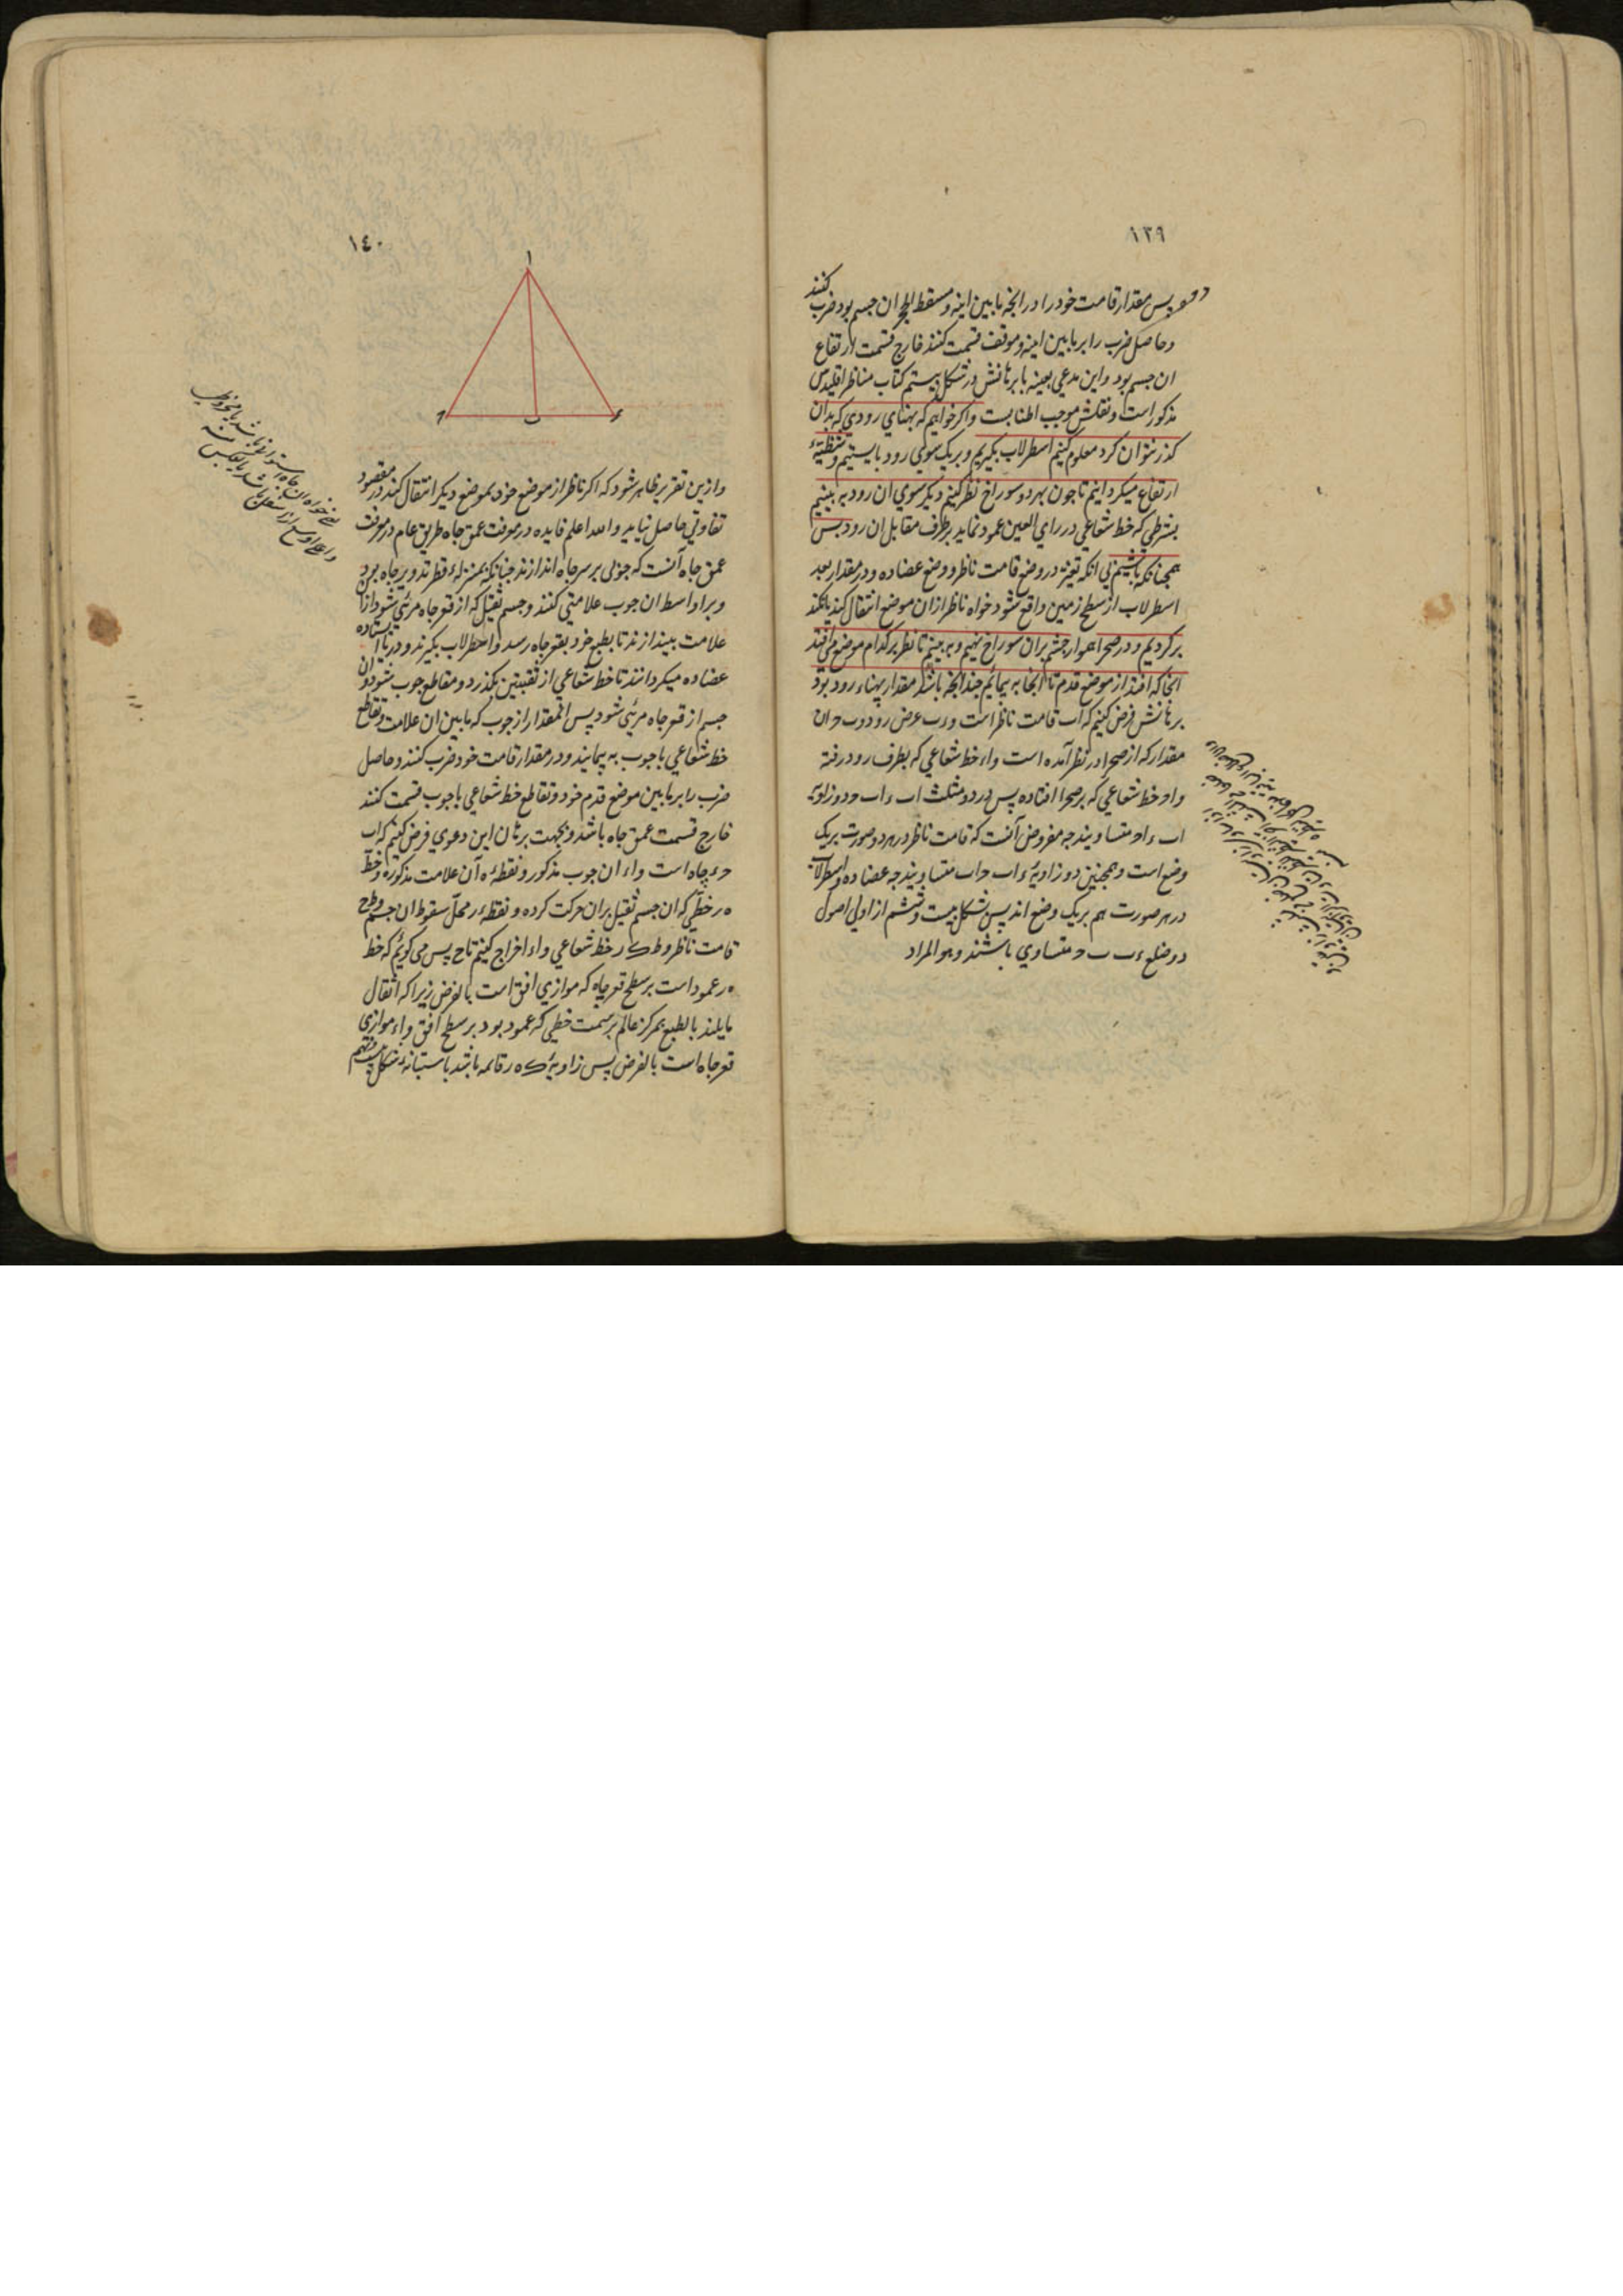 ١٣٩
پس مقدار قامت خود را در انچه مابین اینه و مسقط الحجر ان جسم بود ضرب کنند
و حاصل ضرب را بر مابین اینه و موقف قسمت کنند خارج قسمت ارتفاع
ان جسم بود و این مدعی بعینه با برهانش در شکل بیستم کتاب مناظر اقلیدس
مذکور است و نقلش موجب اطنابست و اکر خواهیم که پهنای رودی که بدان
کذر نتوان کرد معلوم کنیم اسطرلاب بکیریم و بر یک سوی رود بایستیم و شظیهٔ
ارتفاع میکردانیم تا چون بهر دو سوراخ نظر کنیم دیکر سوی ان رود به بینیم
بشرطی که خط شعاعی در رای العین عمود نماید بر طرف مقابل ان رود پس
همچنانکه باشیم بی انکه تغییر در وضع قامت ناظر و وضع عضاده و در مقدار بعد
اسطرلاب از سطح زمین واقع شود خواه ناظر از ان موضع انتقال کند یا نکند
برکردیم و در صحرا هموار چشم بران سوراخ نهیم و به بینیم تا نظر بر کدام موضع می افتد
انجا که افتد از موضع قدم تا انجا به پیمائیم چندانچه باشد مقدار پهناء رود بود
برهانش فرض کنیم که اب قامت ناظر است و ء ب عرض رود و ب ح ان
مقدار که از صحرا در نظر آمده است و اء خط شعاعی که بطرف رود رفته
و اح خط شعاعی که بر صحرا افتاده پس در دو مثلث اب ء اب ح دو زاویه
اب ء اح متساویند چه مفروض آنست که قامت ناظر در هر دو صورت بر یک
وضع است و همچنین دو زاویهٔ ء اب ح اب متساویند چه عضاده و اسطرلاب
در هر صورت هم بر یک وضع اند پس بشکل بیست و ششم از اولی اصول
دو ضلع ء ب ب ح متساوی باشند و هو المراد
١٤٠
ا
ح ب ء
و ازین تقریر ظاهر شود که اکر ناظر از موضع خود بموضع دیکر انتقال کند در مقصود
تفاوتی حاصل نیاید و الله اعلم فایده در معرفت عمق چاه طریق عام در معرفت
عمق چاه آنست که چوبی بر سر چاه اندازند چنانکه بمنزلهٔ قطر تدویر چاه بود
و بر اواسط ان چوب علامتی کنند و جسم ثقیل که از قعر چاه مرئی شود از ان
علامت بیندازند تا بطبع خود بقعر چاه رسد و اسطرلاب بکیرند و
عضاده میکردانند تا خط شعاعی از ثقبتین بکذرد و مقاطع چوب شود و ان
جسم از قعر چاه مرئی شود پس انمقدار از چوب که مابین ان علامت و تقاطع
خط شعاعی با چوب به پیمایند و در مقدار قامت خود ضرب کنند و حاصل
ضرب را بر مابین موضع قدم خود و تقاطع خط شعاعی با چوب قسمت کنند
خارج قسمت عمق چاه باشد و بجهت برهان این دعوی فرض کنیم که اب
ح ء چاه است و اء ان چوب مذکور و نقطهٔ ه آن علامت مذکوره و خط
ه ر خطی که ان جسم ثقیل بران حرکت کرده و نقطهٔ ر محل سقوط ان جسم و ط ح
قامت ناظر و ط ک ر خط شعاعی و اء اخراج کنیم تا ح پس می کوئیم که خط
ه ر عمود است بر سطح قعر چاه که موازی افق است بالفرض زیرا که اثقال
مایلند بالطبع بمرکز عالم بر سمت خطی که عمود بود بر سطح افق و اء موازی
قعر چاه است بالفرض پس زاویهٔ ک ه ر قائمه باشد باستبانهٔ شکل